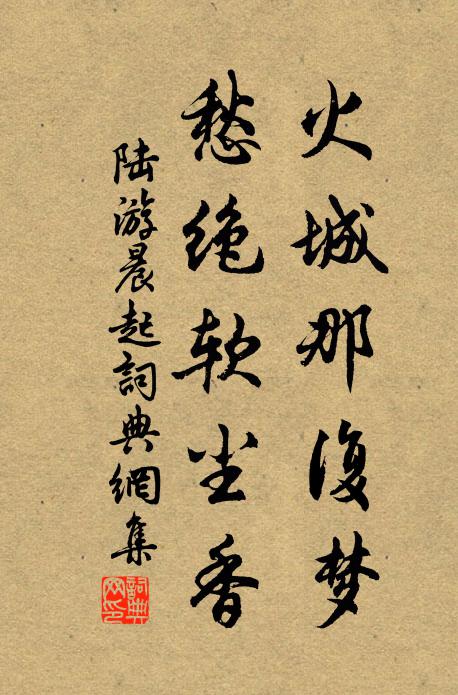 火城那復梦
愁绝软尘香
陆游晨起詞典網集
詞典网印